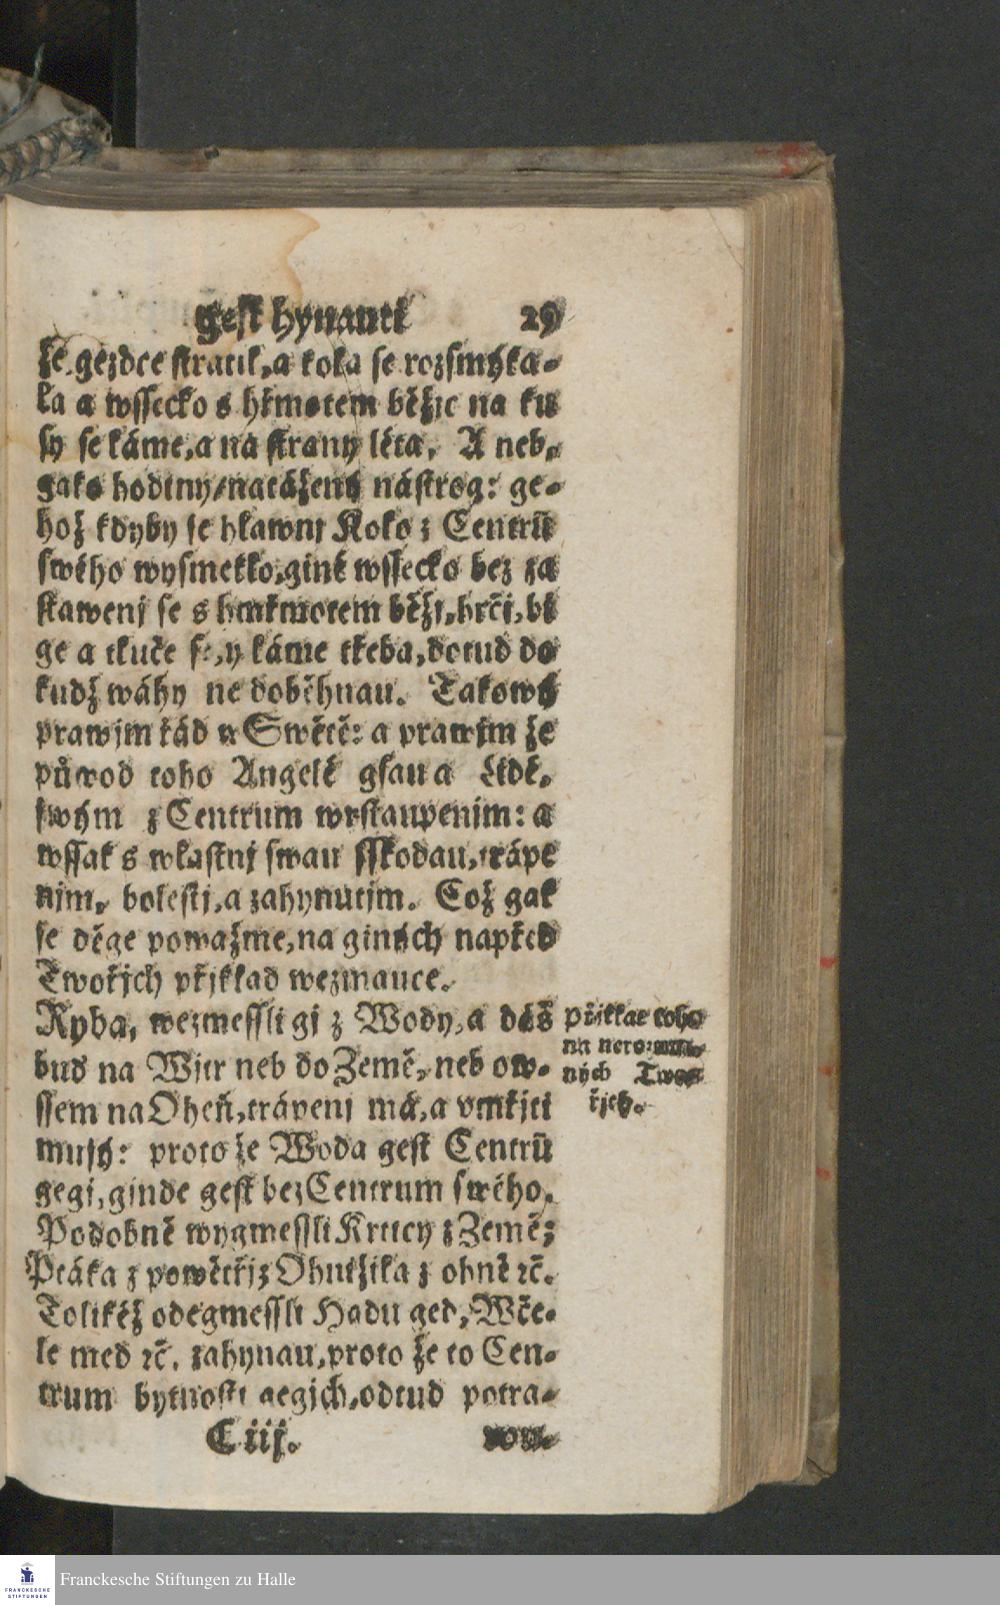 gest hynautj 29
že gezdce stratil, a kola se rozsmýka-
la a wssecko s hřmotem běžjc na ku
sy se láme, a na strany léta. A neb,
gako hodiny/natážený nástrog: ge-
hož kdyby se hlawnj Kolo z Centrū
swého wysmeklo, giné wssecko bez za
stawenj se s hmřmotem běžj, hrčj, bi
ge a tluče se, y láme třeba, dotud do
kudž wáhy ne doběhnau. Takowý
prawjm řád w Swětě: a prawjm že
půwod toho Angelé gsau a Lidé,
swým z Centrum wystaupenjm: a
wssak s wlastnj swau sskodau, trápe
njm, bolestj, a zahynutjm. Což gak
se děge powažme, na giných napřed
Twořjch přjklad wezmauce.
Ryba, wezmessli gi z Wody, a dáš
bud na Wjtr neb do Země, neb ow-
ssem na Oheň, trápenj má, a vmřjti
musý: proto že Woda gest Centrū
gegj, ginde gest bez Centrum swého.
Podobně wygmessli Krticy z Země;
Ptáka z powětřj; Ohnižjka z ohně ꝛč.
Tolikéž odegmessli Hadu ged, Wče-
le med ꝛč. zahynau, proto že to Cen-
trum bytnosti gegjch, odtud potra-
C iij. wu-
Přjklad toho
na nerozum-
ných Two-
řjch.
Franckesche Stiftungen zu Halle
FRANCKESCHE
STIFTUNGEN